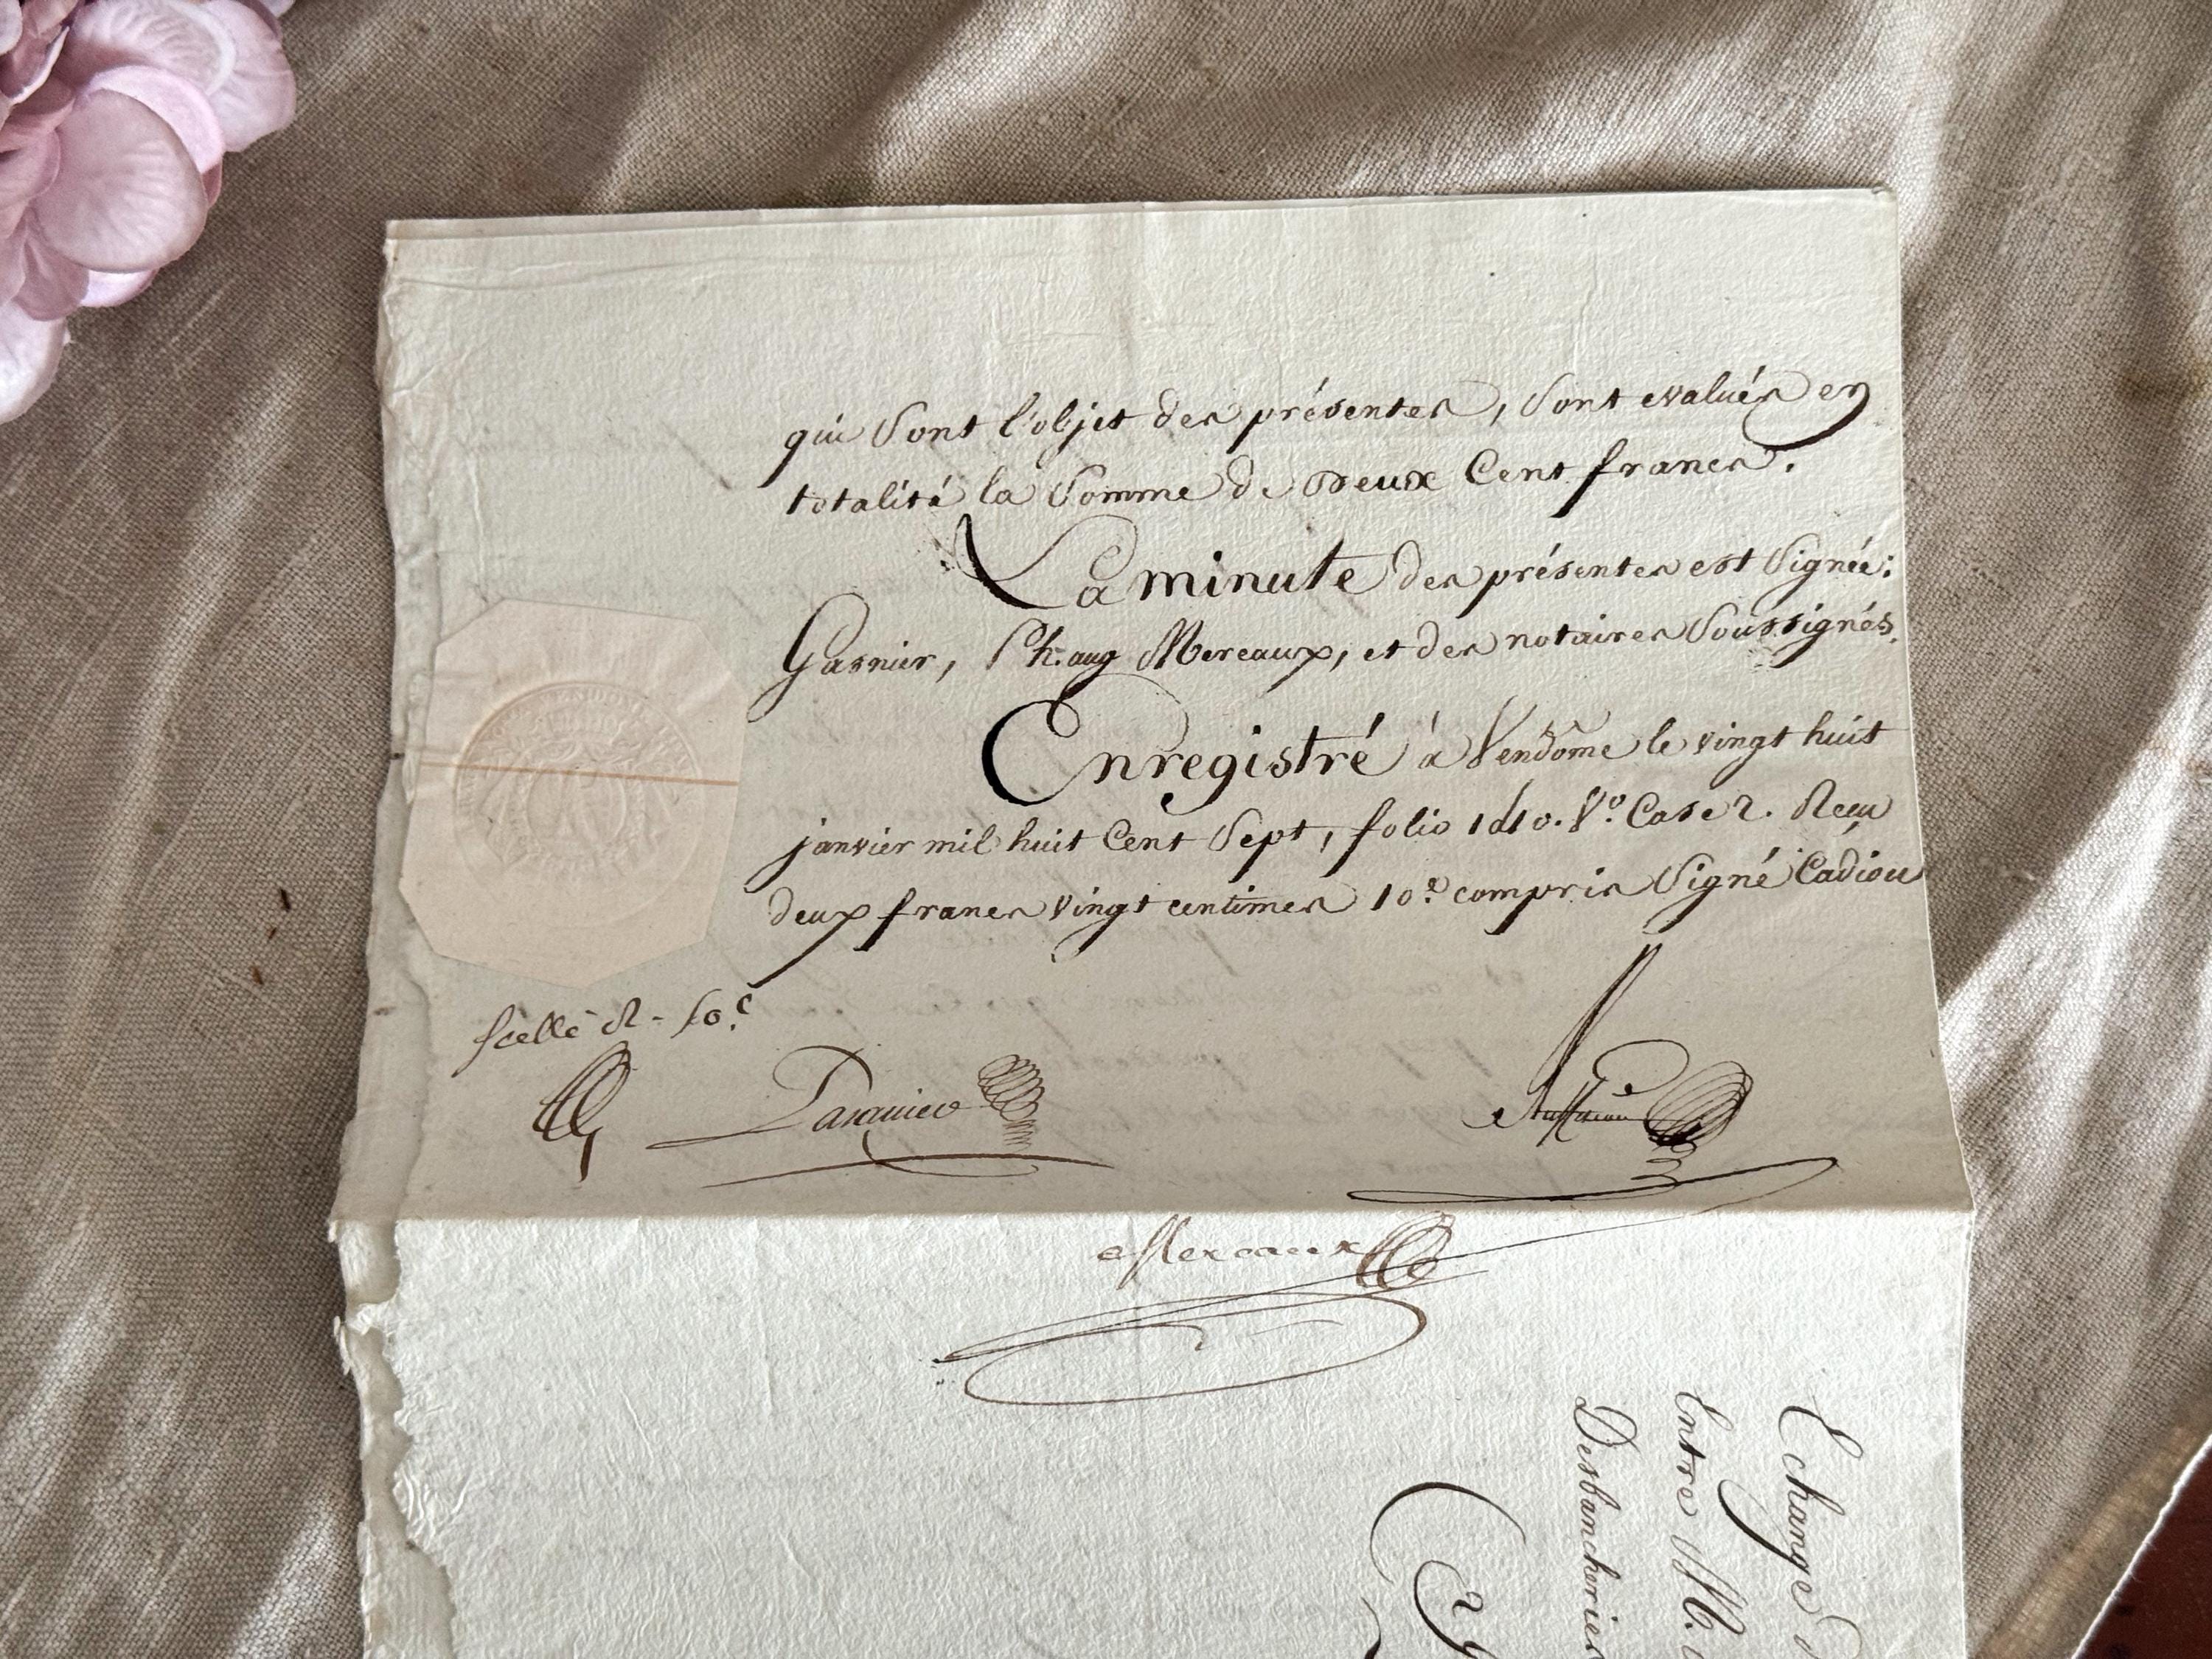 qui sont l'objet des présentes, sont evalués en
totalité la somme de Deux Cent francs.
La minute des présentes est signée:
Garnier, Ph. aug Mereaux, et des notaires soussignés.
Enregistré à Vendôme le vingt huit
janvier mil huit Cent Sept, folio 140. Vo. Case 2. Reçu
deux francs vingt centimes 10e. compris Signé Cadiou
scellé
Mereaux
Echange
Entre M.
Desbancheries